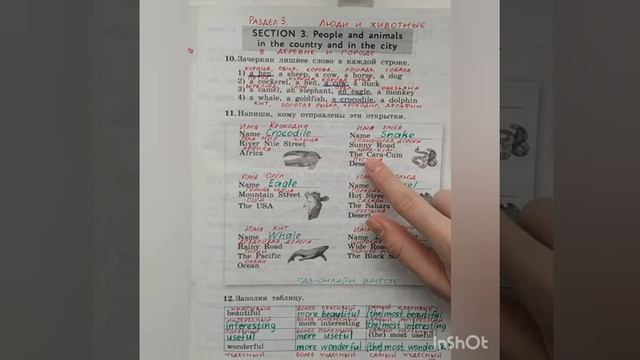 РАЗДЕЛ 3. ЛЮДИ И ЖИВОТНЫЕ
SECTION 3. People and animals
in the country and in the city
В ДЕРЕВНЕ И ГОРОДЕ
10. Зачеркни лишнее слово в каждой строке.
КУРИЦА, ОВЦА, КОРОВА, ЛОШАДЬ, СОБАКА
1) a hen, a sheep, a cow, a horse, a dog
2) a cockerel, a hen, a cow, a duck
3) a camel, an elephant, an eagle, a monkey
4) a whale, a goldfish, a crocodile, a dolphin
КИТ, ЗОЛОТАЯ РЫБКА, КРОКОДИЛ, ДЕЛЬФИН
11. Напиши, кому отправлены эти открытки.
ИМЯ КРОКОДИЛ
Name Crocodile
River Nile Street
АФРИКА
Africa
ИМЯ ЗМЕЯ
Name Snake
СОЛНЕЧНАЯ ДОРОГА
Sunny Road
КАРА-КУМ
The Cara-Cum
ИМЯ ОРЕЛ
Name Eagle
Mountain Street
США
The USA
Name
Hot Street
САХАРА
The Sahara
ПУСТЫНЯ
Desert
ИМЯ КИТ
Name Whale
ДОЖДЛИВАЯ ДОРОГА
Rainy Road
ТИХИЙ
The Pacific
ОКЕАН
Ocean
Wide
The Black
ГДЗ-ОНЛАЙН ВМЕСТЕ
12. Заполни таблицу.
КРАСИВЫЙ БОЛЕЕ КРАСИВЫЙ САМЫЙ КРАСИВЫЙ
beautiful more beautiful (the) most beautiful
interesting more interesting (the) most interesting
useful more useful (the) most useful
wonderful more wonderful (the) most
ЧУДЕСНЫЙ БОЛЕЕ ЧУДЕСНЫЙ САМЫЙ ЧУДЕСНЫЙ
InShOt